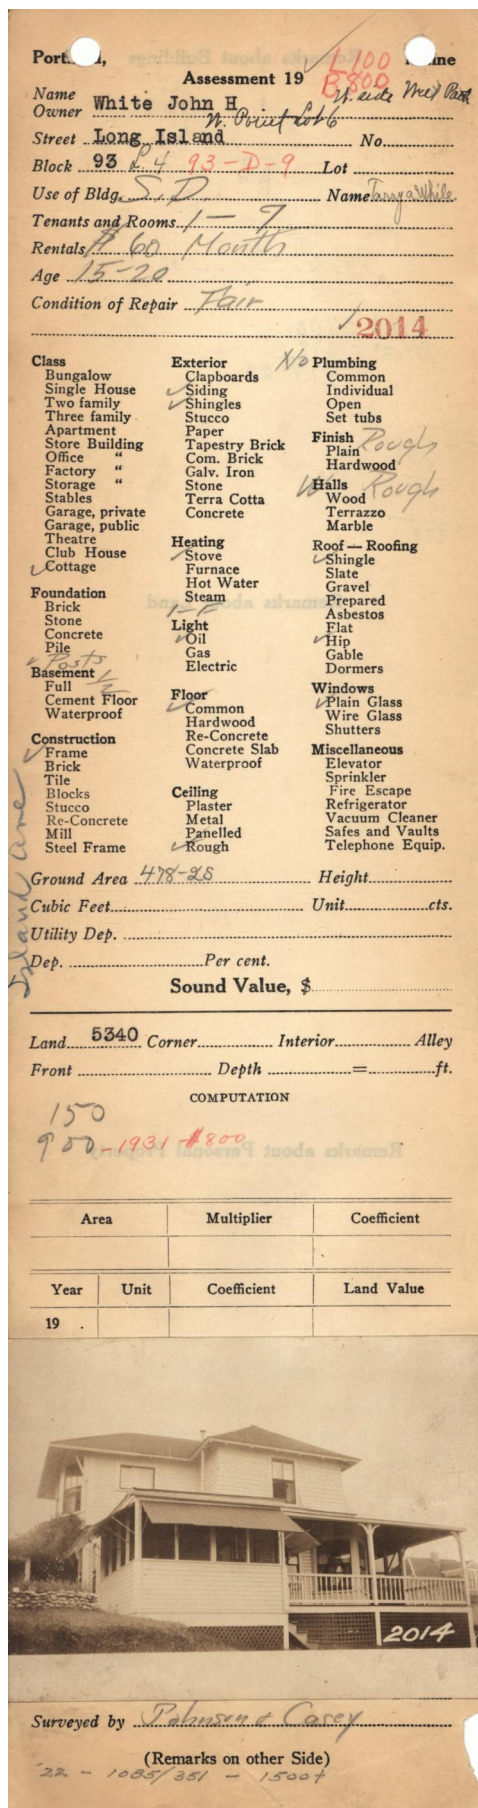 Portland, Maine
1100
B 800
Assessment 19
W. side West Park
Name
Owner White John H
W. Point Lot 6
Street Long Island No.
Block 93 L. 4 93-D-9 Lot
Use of Bldg. S.D. Name
Tenants and Rooms 1 – 9
Rentals $ 60 Month
Age 15-20
Condition of Repair Fair
2014
Class
Bungalow
Single House
Two family
Three family
Apartment
Store Building
Office "
Factory "
Storage "
Stables
Garage, private
Garage, public
Theatre
Club House
Cottage
Foundation
Brick
Stone
Concrete
Pile
Posts
Basement 1/2
Full
Cement Floor
Waterproof
Construction
Frame
Brick
Tile
Blocks
Stucco
Re-Concrete
Mill
Steel Frame
Exterior
Clapboards
Siding
Shingles
Stucco
Paper
Tapestry Brick
Com. Brick
Galv. Iron
Stone
Terra Cotta
Concrete
Heating
Stove
Furnace
Hot Water
Steam
1-F
Light
Oil
Gas
Electric
Floor
Common
Hardwood
Re-Concrete
Concrete Slab
Waterproof
Ceiling
Plaster
Metal
Panelled
Rough
No Plumbing
Common
Individual
Open
Set tubs
Finish Rough
Plain
Hardwood
Halls Rough
Wood
Terrazzo
Marble
Roof — Roofing
Shingle
Slate
Gravel
Prepared
Asbestos
Flat
Hip
Gable
Dormers
Windows
Plain Glass
Wire Glass
Shutters
Miscellaneous
Elevator
Sprinkler
Fire Escape
Refrigerator
Vacuum Cleaner
Safes and Vaults
Telephone Equip.
Island Ave
Ground Area 478-2S Height
Cubic Feet Unit cts.
Utility Dep.
Dep. Per cent.
Sound Value, $
Land 5340 Corner Interior Alley
Front Depth = ft.
COMPUTATION
150
900 -1931-$800
Area Multiplier Coefficient
Year Unit Coefficient Land Value
19 .
2014
Surveyed by Johnson & Casey
(Remarks on other Side)
'22 - 1085/351 - 1500+